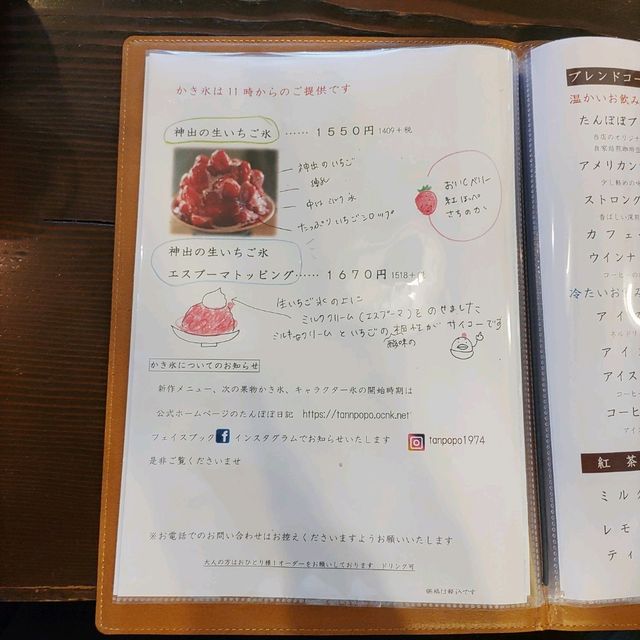 かき氷は11時からのご提供です
神出の生いちご氷 …… 1550円 1409+税
神出のいちご
練乳
中はミルク氷
たっぷりいちごシロップ
おいCベリー
紅ほっぺ
さちのか
神出の生いちご氷
エスプーマトッピング…… 1670円 1518+税
生いちご氷の上に
ミルククリーム(エスプーマ)をのせました
ミルキーなクリームといちごの
酸味の
サイコーです
かき氷についてのお知らせ
新作メニュー、次の果物かき氷、キャラクター氷の開始時期は
公式ホームページのたんぽぽ日記 https://tannpopo.ocnk.net
フェイスブック インスタグラムでお知らせいたします tanpopo1974
是非ご覧くださいませ
※お電話でのお問い合わせはお控えくださいますようお願いいたします
大人の方はおひとり様1オーダーをお願いしております ドリンク可
価格は税込です
ブレンドコー
温かいお飲み
たんぽぽブ
当店のオリジナ
自家焙煎珈琲
アメリカン
少し軽めの
ストロング
香ばしい深
カフェ・
ウインナ
コーヒーの
冷たいお
アイ
ネルドリ
アイ
アイス
コーヒ
コーヒ
アイス
紅茶
ミル
レモ
ティ